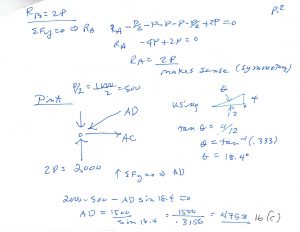 P.2
R_B = 2P
ΣFy=0 ⇒ R_A R_A - P/2 - P - P - P - P/2 + 2P = 0
R_A - 4P + 2P = 0
R_A = 2P
makes sense (symmetry)
P/2 = 1000/2 = 500
Pin A
AD
AC
2P = 2000
↑ΣFy=0 ⇒ AD
using
θ
4
12
tan θ = 4/12
θ = tan⁻¹(.333)
θ = 18.4°
2000 - 500 - AD sin 18.4 = 0
AD = 1500/sin 18.4 = 1500/.3156 = 4753 lb (c)